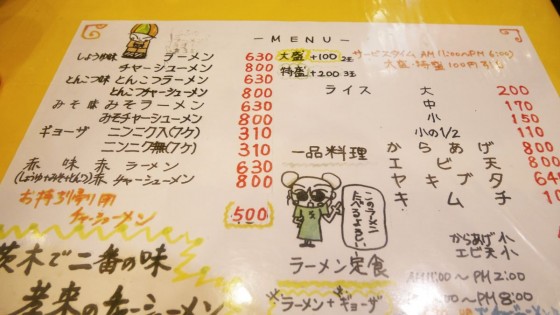 －MENU－
しょうゆ味 ラーメン 630
チャーシューメン 800
とんこつ味 とんこつラーメン 630
とんこつチャーシューメン 800
みそ味 みそラーメン 630
みそチャーシューメン 800
ギョーザ ニンニク入(7ケ) 310
ニンニク無(7ケ) 310
赤味 赤ラーメン 630
(しょうゆ+みそ+とんこつ)赤チャーシューメン 800
お持ち帰り用
チャーシューメン 500
茨木で二番の味
大盛 +100 2玉
特盛 +200 3玉
サービスタイム
大盛・特盛 100円引
ライス 大 200
中 170
小 150
小の1/2 110
一品料理
からあげ 800
エビ天 800
ヤキブタ 640
キムチ
このラーメン
たべるよろしい
からあげ 小
エビ天 小
ラーメン定食
AM 11:00～PM 2:00
～PM 8:00
ラーメン+ギョーザ